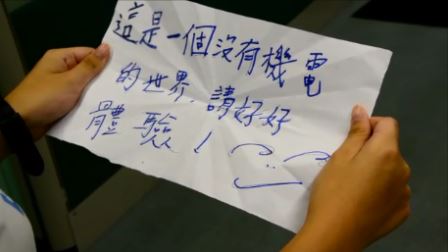 這是一個沒有機電
的世界,請好好
體驗!